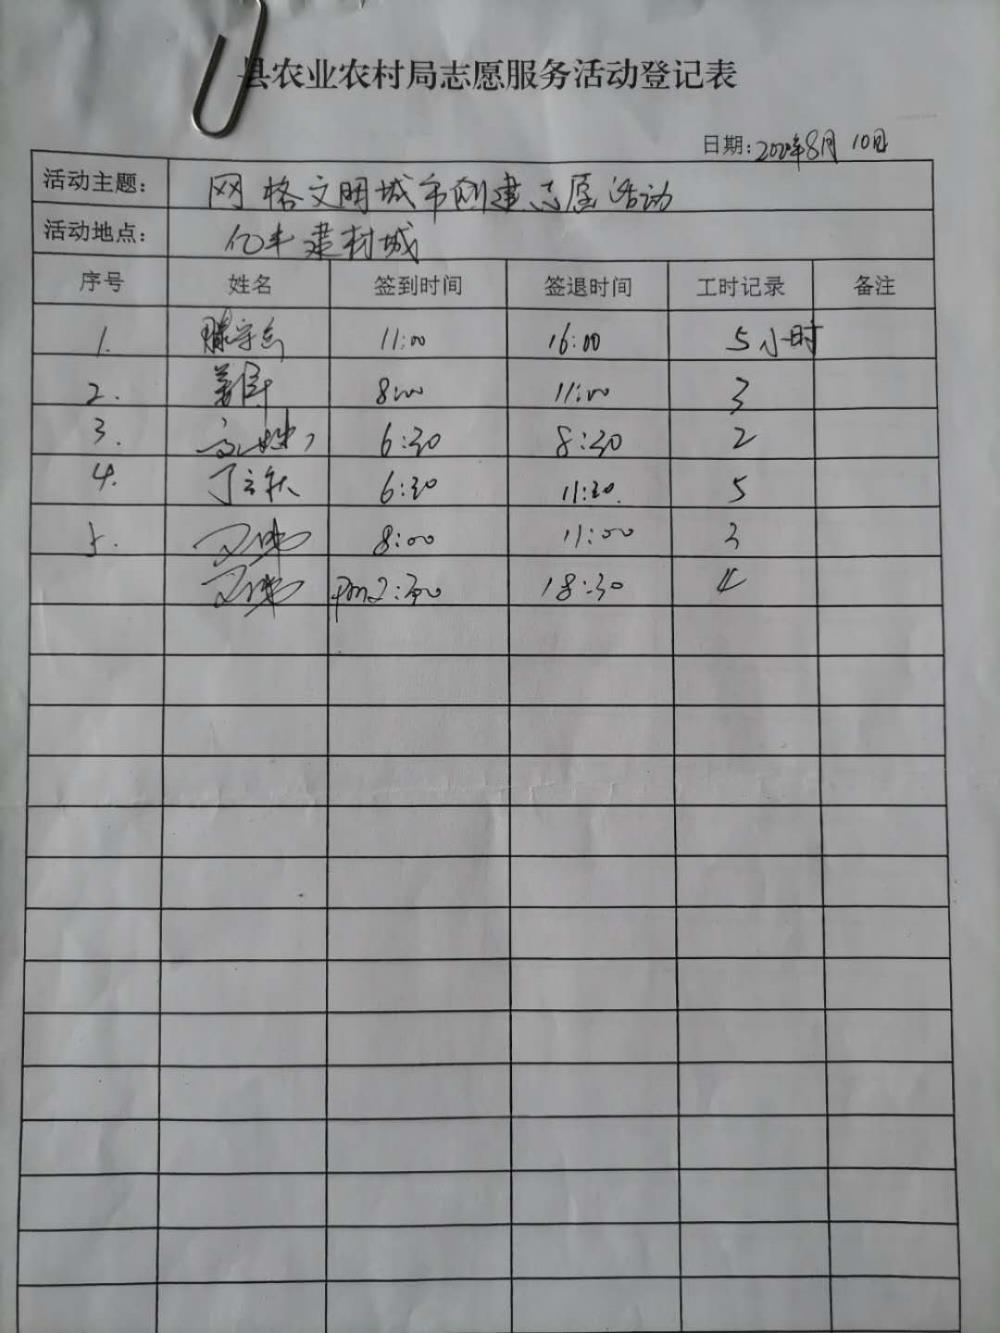 县农业农村局志愿服务活动登记表
日期:2020年8月10日
活动主题: 网格文明城市创建志愿活动
活动地点: 亿丰建材城
序号 姓名 签到时间 签退时间 工时记录 备注
1. 滕宗志 11:00 16:00 5小时
2. 8:00 11:00 3
3. 6:30 8:30 2
4. 丁云秋 6:30 11:30. 5
5. 8:00 11:00 3
Pm2:30 18:30 4